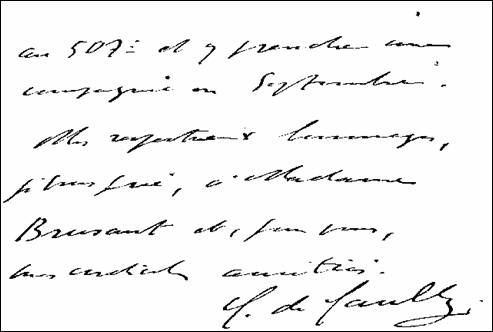 au 507e et y prendre une
compagnie en Septembre.
Mes respectueux hommages,
je vous prie, à Madame
Brusaut et, pour vous,
mes cordiales amitiés.
C. de Gaulle